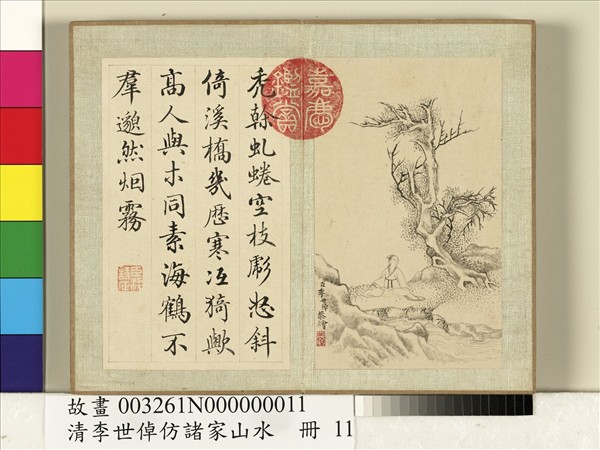 禿榦虬蜷空枝斜
倚溪橋幾歷寒冱猗歟
高人與木同素海鶴不
羣邈然烟霧
嘉慶鑑賞
臣李世倬恭繪
故畫 003261N000000011
清李世倬仿諸家山水 冊 11